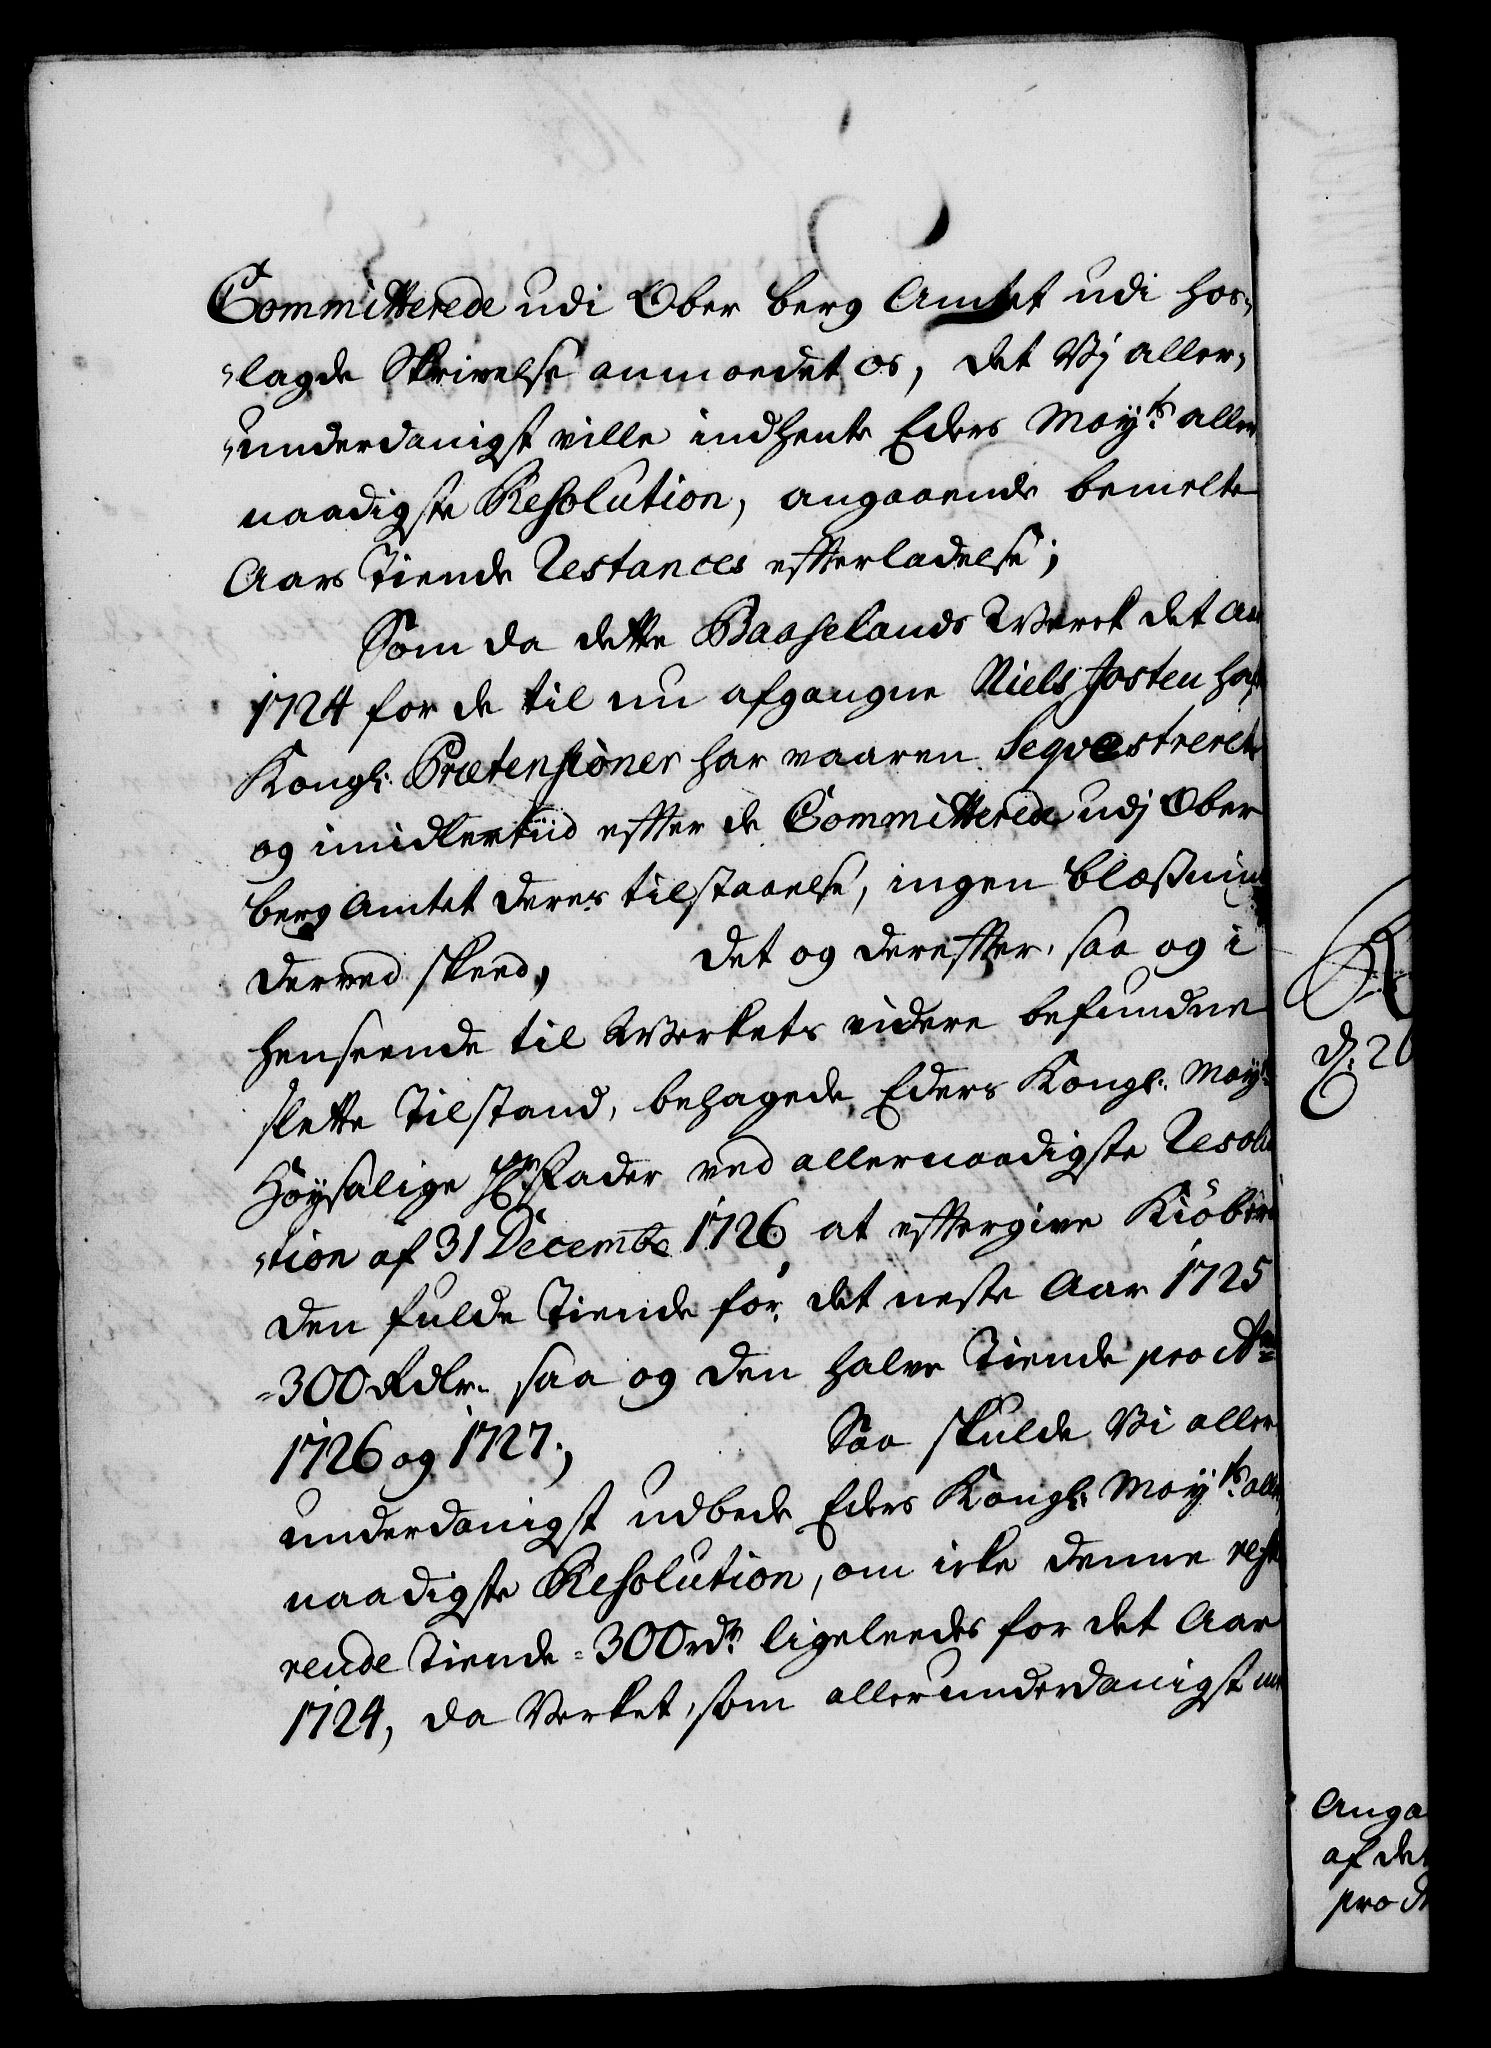 Committerede udi Ober berg Amtet udi hos-
-lagde Skrivelse anmoedet os, det Vj aller-
-underdanigst ville indhente Eders Mayts aller
naadigste Resolution, angaaende bemelte
Aars Tiende Restances efterladelse;
Som da dette Baaselands Werck det An
1724 for de til nu afgangne Niels Josten
Kongl: Prætensioner har vaaren Seqvestreret
og imidlertiid efter de Committerede udj Ober
berg Amtet deres tilstaaelse, ingen blæsning
derved skeed, det og derefter, saa og i
henseende til Werkets videre befundne
slette Tilstand, behagede Eders Kongl: Mayts
Høysalige Hr Fader ved allernaadigste Resolu
-tion af 31 Decembr 1726, at eftergive
den fulde Tiende for det neste Aar 1725
=300 Rdlr. saa og den halve Tiende pro Ao
1726 og 1727; Saa skulde Vi aller
underdanigst udbede Eders Kongl: Mayts aller
naadigste Resolution, om icke denne reste
rende Tiende =300 rdr ligeleedes for det Aar
1724, da Verket, som allerunderdanigst
d: 26
Anga
af det
pro